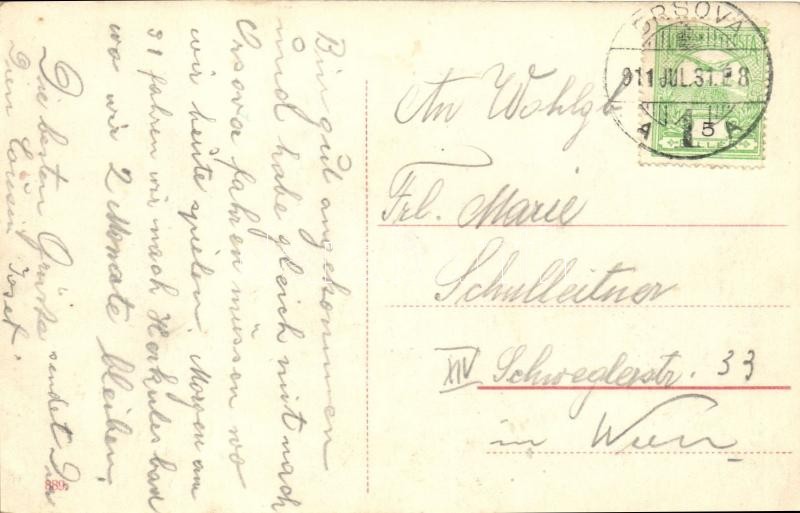 Bin gut angekommen
und habe gleich mit nach
Orsova fahren müssen wo
wir heute spielen. Morgen am
31 fahren wir nach Herkulesbad
wo wir 2 Monate bleiben.
Die besten Grüße sendet Dir
Dein Josef.
An Wohlgb
Frl. Marie
Schulleitner
XIV Schweglerstr. 33
in Wien
ORSOVA
911 JUL. 31. 8
A A
5
889